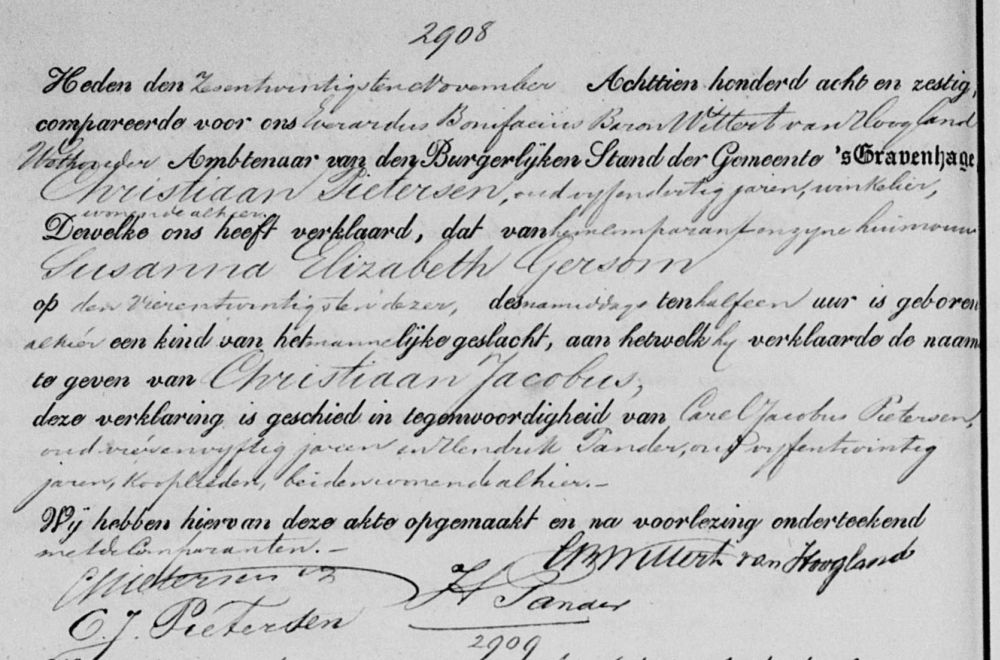 2908
Heden den Zesentwintigsten November Achttien honderd acht en zestig,
compareerde voor ons Everardus Bonifacius Baron Wittert van Hoogland
Wethouder Ambtenaar van den Burgerlijken Stand der Gemeente 's Gravenhage
Christiaan Pietersen, oud vyfendertig jaren, winkelier,
wonende alhier.
Dewelke ons heeft verklaard, dat van hem Comparant en zyne huisvrouw
Susanna Elizabeth Gersom
op den Vierentwintigsten dezer, des namiddags ten half een uur is geboren
alhier een kind van het mannelijke geslacht, aan hetwelk hy verklaarde de naam
te geven van Christiaan Jacobus,
deze verklaring is geschied in tegenwoordigheid van Carel Jacobus Pietersen,
oud vierenvyftig jaren en Hendrik Pander, oud vyfentwintig
jaren, kooplieden, beiden wonende alhier.-
Wij hebben hiervan deze akte opgemaakt en na voorlezing onderteekend
met de Comparanten.-
EBWittert van Hoogland
Ch Pietersen
H Pander
C. J. Pietersen
2909